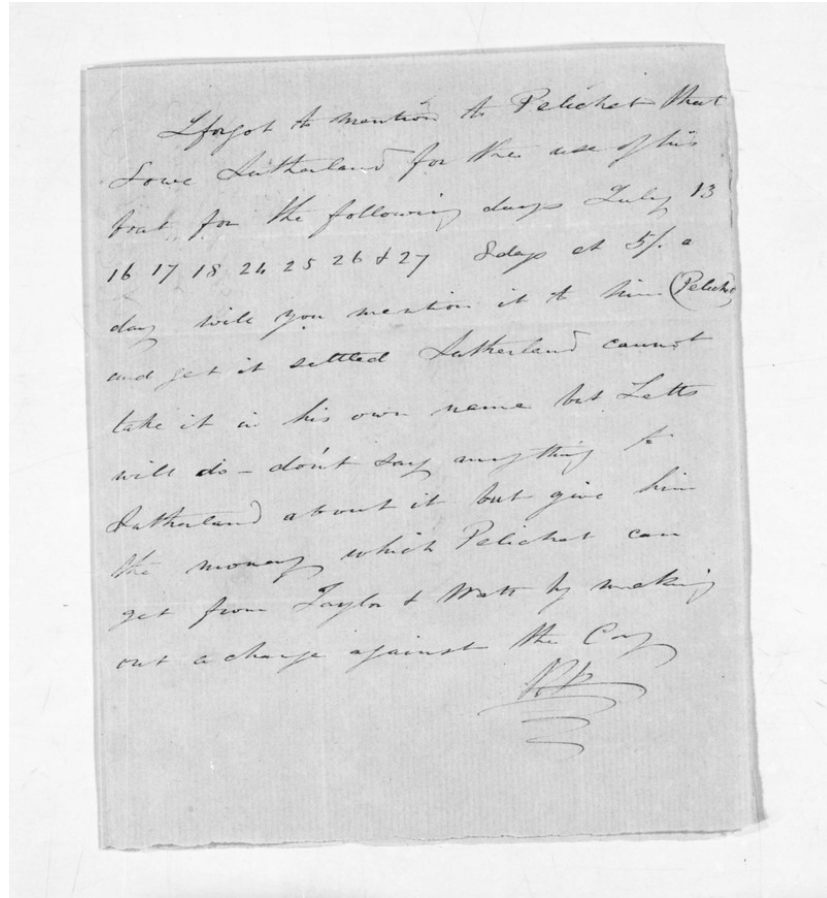 I forgot to mention to Pelichet that
I owe Sutherland for the use of his
boat for the following days July 13
16 17 18 24 25 26 & 27 8 days at 5/. a
day will you mention it to him (Pelichet)
and get it settled Sutherland cannot
take it in his own name but Letts
will do – don't say anything to
Sutherland about it but give him
the money which Pelichet can
get from Taylor & Watt by making
out a charge against the Coy